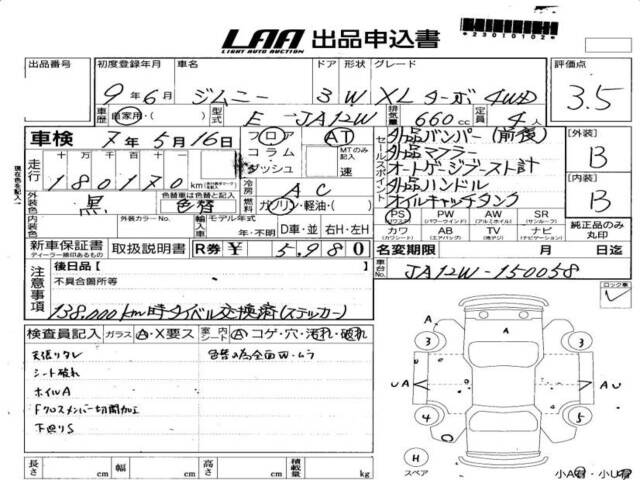 LAA 出品申込書
LIGHT AUTO AUCTION
*23010102*
出品番号 初度登録年月 車名 ドア 形状 グレード 評価点
9年6月 ジムニー 3 W XL ターボ 4WD 3.5
車歴 自家用・( ) 型式 E-JA12W 排気量 660cc 定員 4人
車検 7年5月16日 フロア AT
コラム MTのみ記入
ダッシュ 速
走行 十万千百十
180170 km
現在色を記入→
外装色 黒 色替車は色替と記入 色替 冷房 AC
燃料 ガソリン・軽油・( )
内装色 外装カラーNo. 輸入車 モデル年式 年・不明 D車・並 右H・左H
セールスポイント
外品バンパー(前後)
外品マフラー
オートゲージブースト計
外品ハンドル
オイルキャッチタンク
[外装] B
[内装] B
PS PW AW SR
(パワステ) (パワーウインド) (アルミホイル) (サンルーフ)
カワ AB TV ナビ
(カワシート) (エアバッグ) (テレビ) (ナビゲーション)
純正品のみ丸印
新車保証書 取扱説明書 R券 ¥ 5,980
ディーラー捺印あるもの
名変期限 月 日迄
車台No. JA12W-150058
注意事項
後日品[ ]
不具合箇所等
138,000km時タイベル交換済(ステッカー)
ロック車
検査員記入 ガラス A・X要ス 室内シート A コゲ・穴・汚れ・破れ
天張りタレ 色替の為全面ワ・ムラ
シート破れ
ホイルA
Fクロスメンバー切開加工
下廻りS
A A
3 3
UA AU
4 5
H
スペア
小A有・小U有
長さ cm 幅 cm 高さ cm 積載量 kg